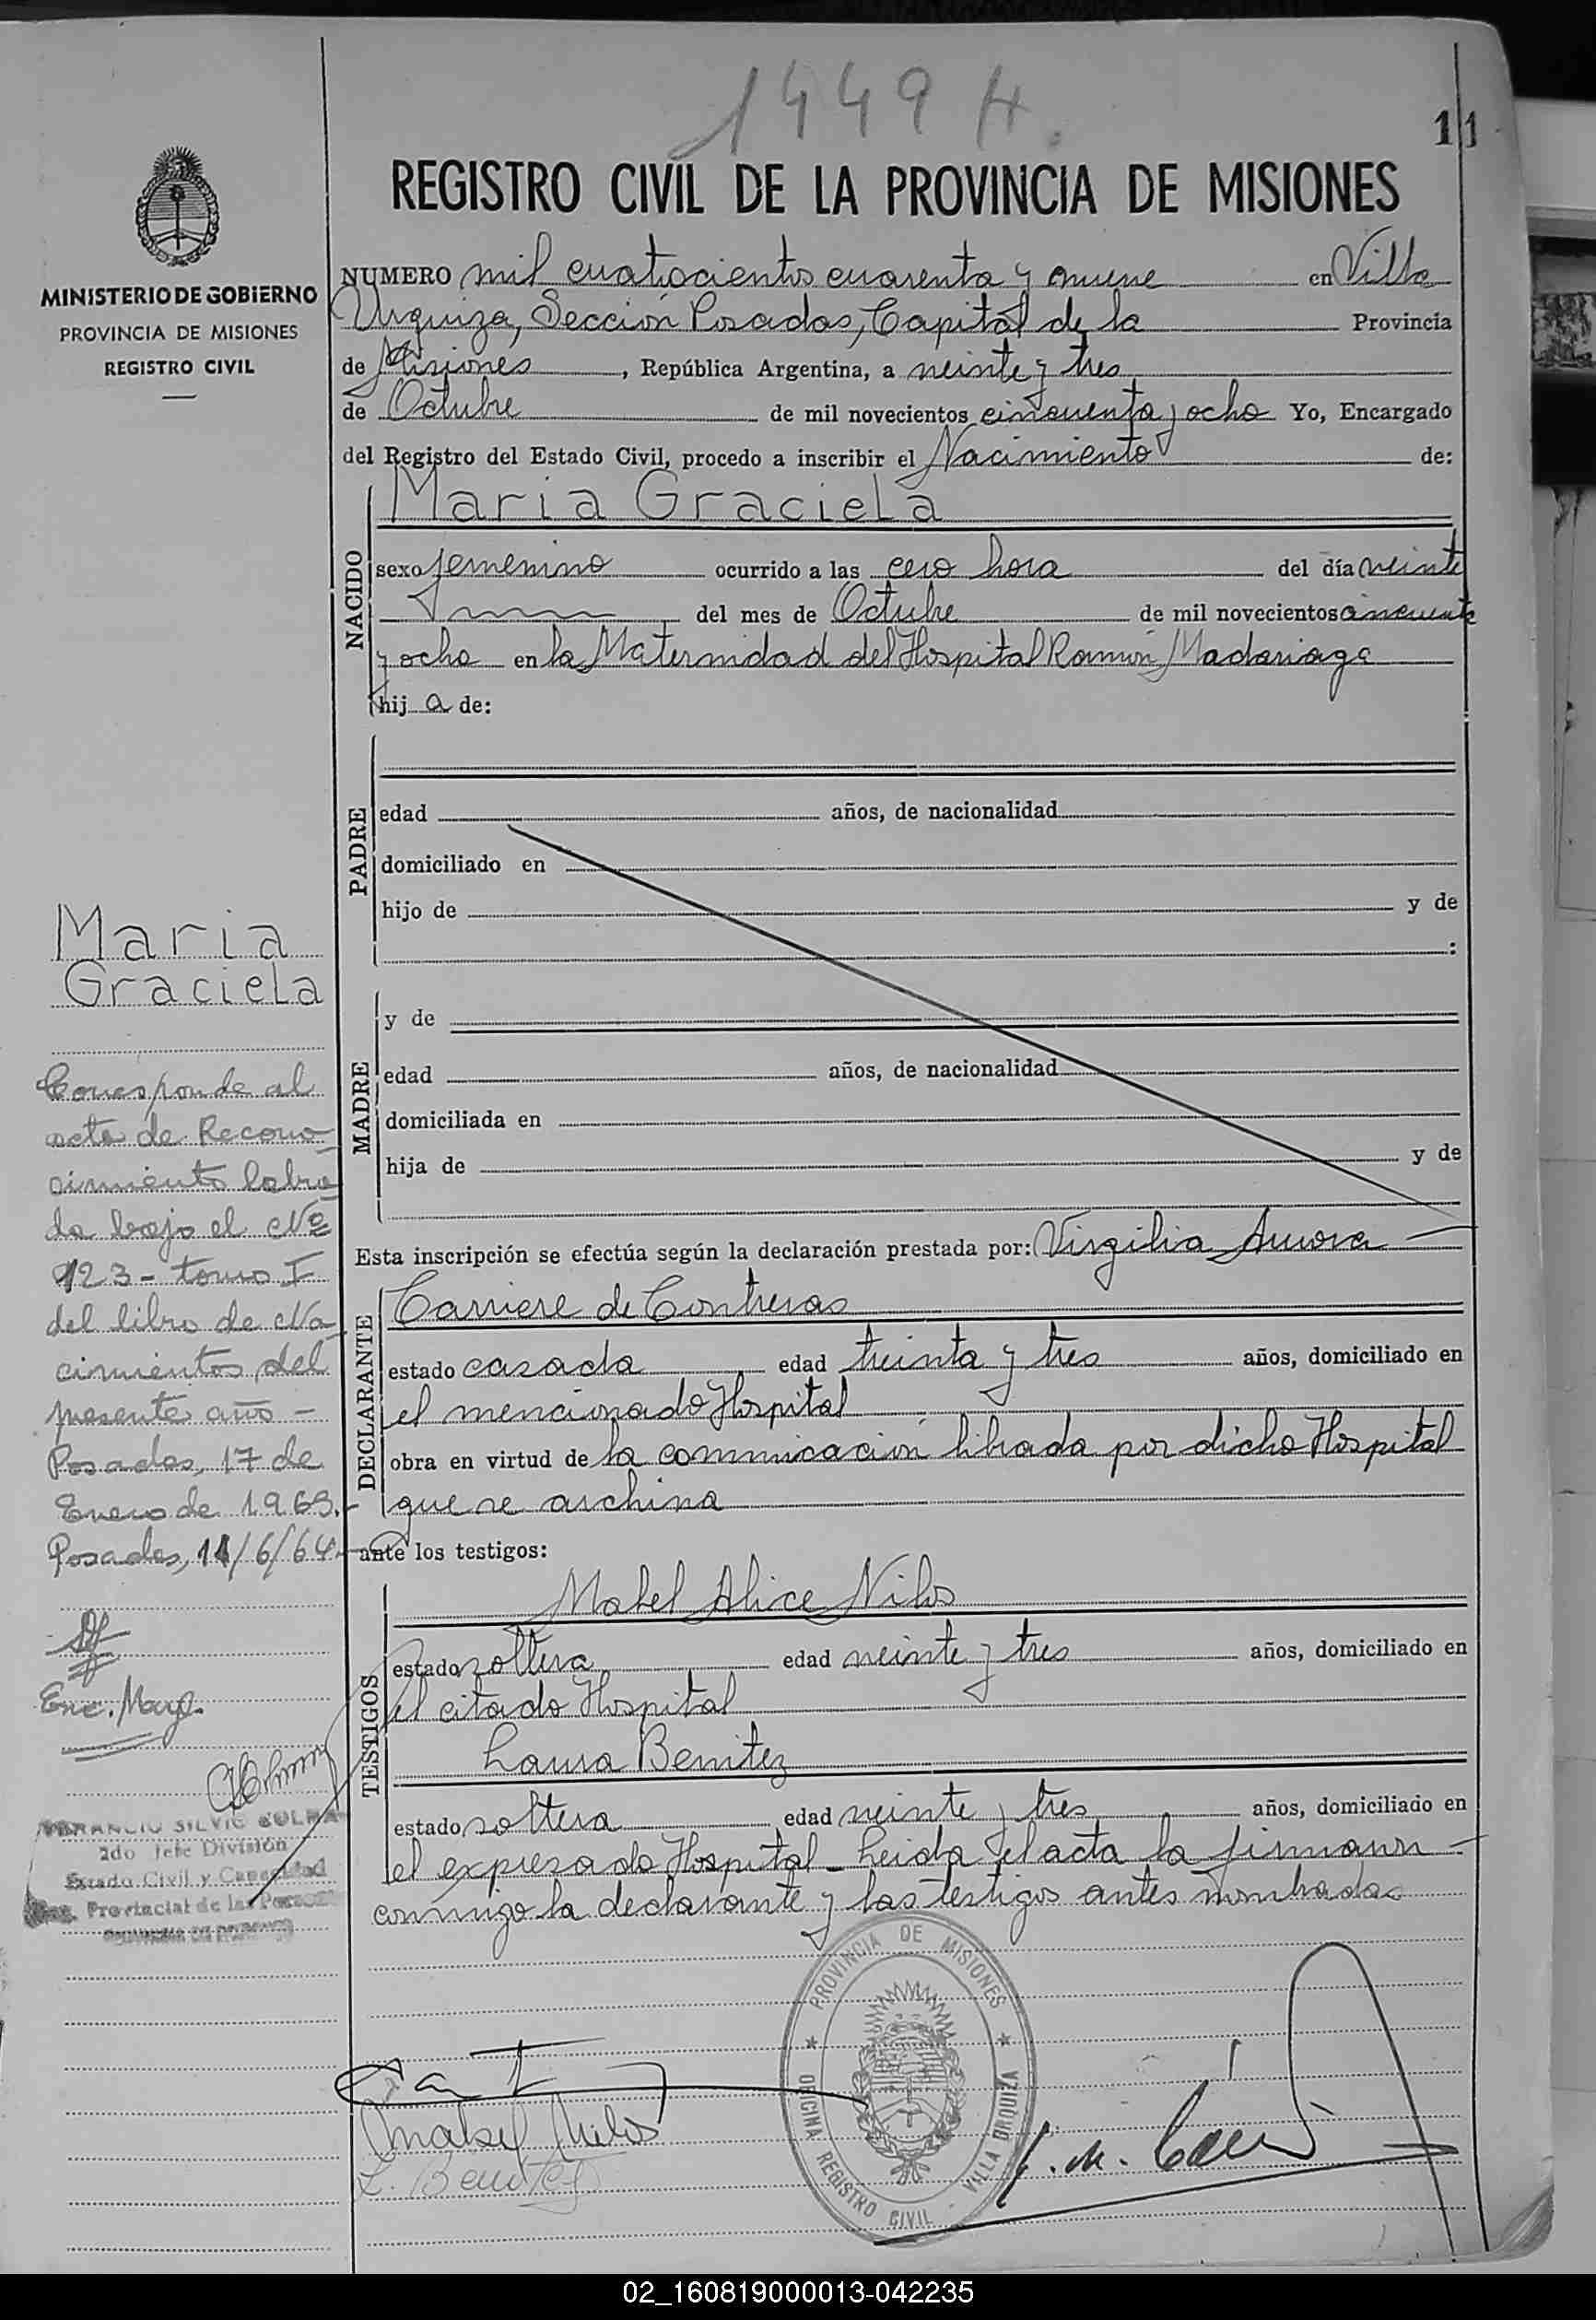 1449 H.
11
REGISTRO CIVIL DE LA PROVINCIA DE MISIONES
MINISTERIO DE GOBIERNO
PROVINCIA DE MISIONES
REGISTRO CIVIL
NUMERO mil cuatrocientos cuarenta y nueve en Villa
Urquiza, Sección Posadas, Capital de la Provincia
de Misiones, República Argentina, a veinte y tres
de Octubre de mil novecientos cincuenta y ocho Yo, Encargado
del Registro del Estado Civil, procedo a inscribir el Nacimiento de:
NACIDO
Maria Graciela
sexo femenino ocurrido a las cero hora del día veinte
del mes de Octubre de mil novecientos cincuenta
y ocho en la Maternidad del Hospital Ramón Madariaga
hij a de:
PADRE
edad años, de nacionalidad
domiciliado en
hijo de y de
:
MADRE
y de
edad años, de nacionalidad
domiciliada en
hija de y de
Esta inscripción se efectúa según la declaración prestada por: Virgilia Aurora
DECLARANTE
Carriere de Contreras
estado casada edad treinta y tres años, domiciliado en
el mencionado Hospital
obra en virtud de la comunicación librada por dicho Hospital
que se archiva
ante los testigos:
TESTIGOS
Mabel Alice Nilos
estado soltera edad veinte y tres años, domiciliado en
el citado Hospital
Laura Benitez
estado soltera edad veinte y tres años, domiciliado en
el expresado Hospital - Leida el acta la firmaron
conmigo la declarante y las testigos antes nombradas
Maria
Graciela
Corresponde al
acta de Recono
cimiento labra
da bajo el Nº
123 - tomo I
del libro de Na
cimientos del
presente año -
Posadas, 17 de
Enero de 1963.-
Posadas, 11/6/64
Enc. Marg.
SILVIO
2do Jefe División
Estado Civil y Capacidad
Provincial de las
PROVINCIA DE MISIONES
OFICINA REGISTRO CIVIL - VILLA URQUIZA
L. Benitez
02_160819000013-042235